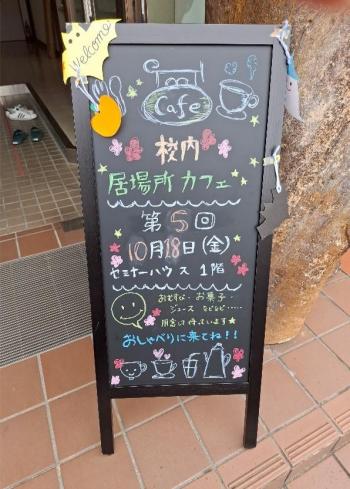 Welcome
Cafe
校内
居場所カフェ
第5回
10月18日(金)
セミナーハウス 1階
おむすび・お菓子・
ジュース などなど……
用意して待っています★
おしゃべりに来てね!!